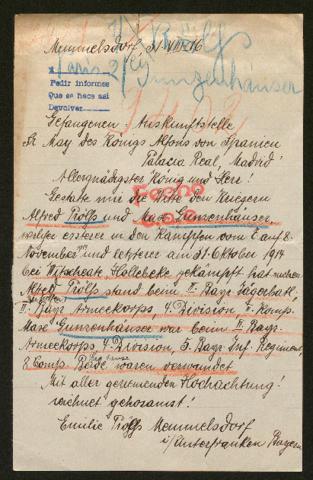 Memmelsdorf, 31 VIII 16
1) X Rölfs
Paris 2) Gunzenhäuser
Pedir informes
Que se hace así
Devolver
Gefangenen Auskunftstelle
Sr. May des Königs Alfons von Spanien
Palacio Real, Madrid!
Allergnädigster König und Herr!
Gestatte mir die Bitte den Kriegern
Alfred und Max Gunzenhäuser
welche ersterer in den Kämpfen vom 5 auf 8
November und letzterer am 31. Oktober 1914
bei Wytschaete Hollebeke gekämpft hat suchen
Alfred stand beim II. Bayr Jägerbatl.
II. Bayr Armeekorps, 4. Division, Komp.
Max Gunzenhäuser war beim II. Bayr.
Armeekorps, 4. Division, 5. Bayr Inf. Regiment,
8 Comp. Beide waren verwundet
Mit aller geziemenden Hochachtung!
zeichnet gehorsamst!
Emilie Memmelsdorf
i/Unterfranken Bayern